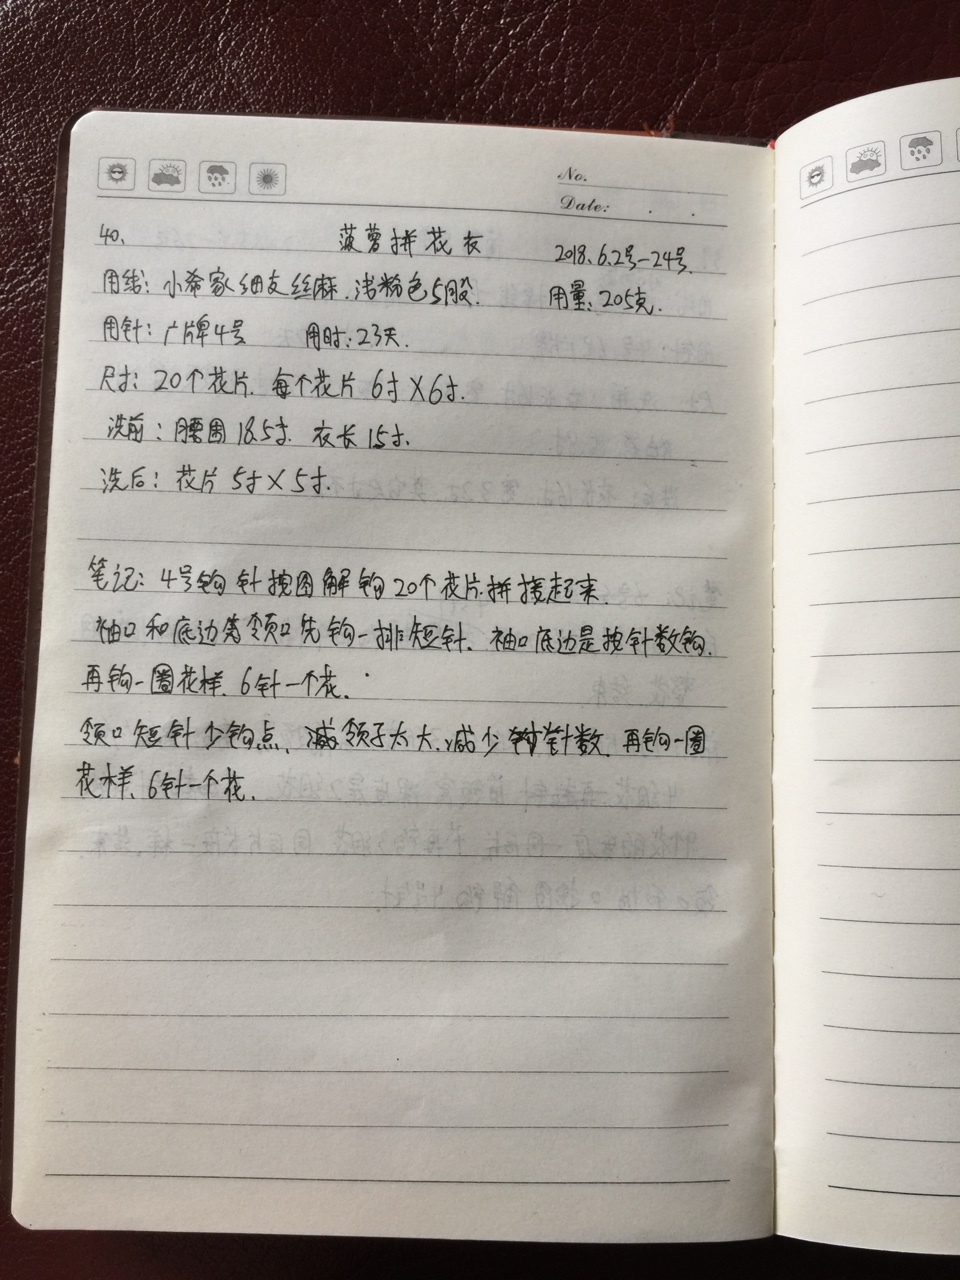 No.
Date: . .
40、 菠萝拼花衣 2018.6.2号-24号.
用线: 小希家细支丝麻.浅粉色5股. 用量:205克.
用针:广牌4号 用时:23天.
尺寸: 20个花片. 每个花片 6寸×6寸.
洗前: 腰围18.5寸. 衣长15寸.
洗后: 花片 5寸×5寸.
笔记: 4号钩针按图解钩20个花片.拼接起来.
袖口和底边领口先钩一排短针. 袖口底边是按针数钩.
再钩一圈花样. 6针一个花.
领口短针少钩点、减领子太大.减少针数. 再钩一圈
花样. 6针一个花.